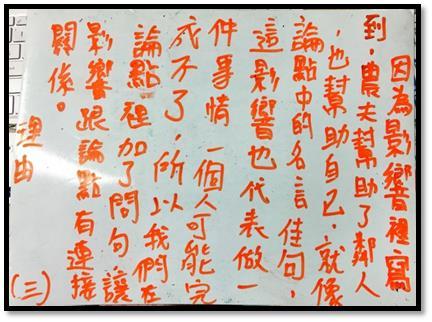 因為影響裡寫
到，農夫幫助了鄰人
，也幫助自己，就像
論點中的名言佳句，
這影響也代表做一
件事情一個人可能完
成不了，所以我們在
論點裡加了問句讓
影響跟論點有連接
關係。
理由(三)